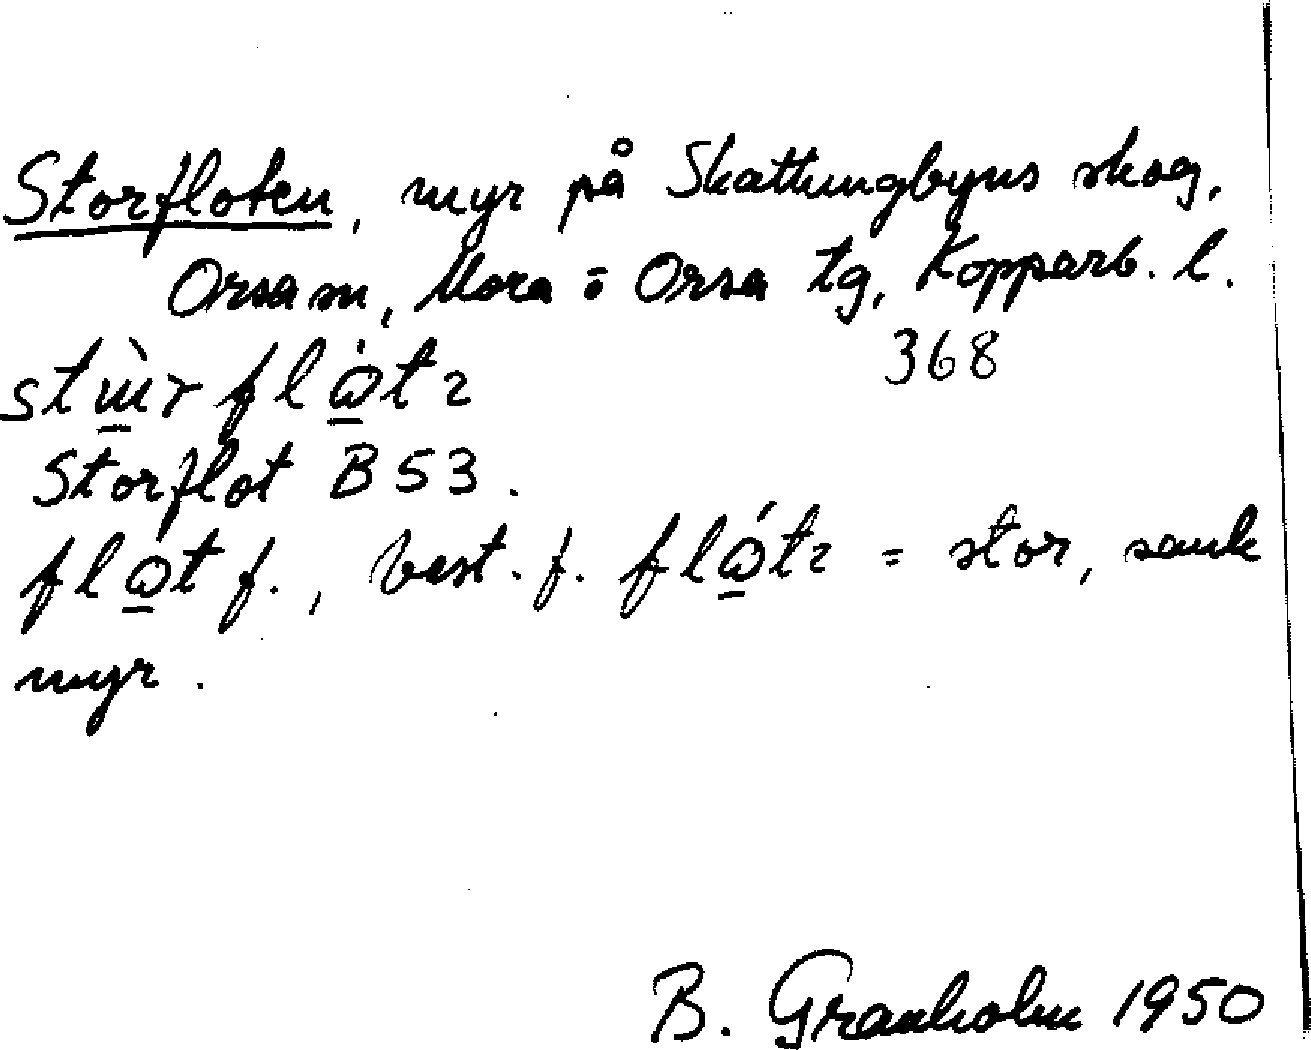 Storfloten, myr på Skattungbyns skog,
Orsa sn, Mora o Orsa tg, Kopparb. l.
368
Storflot B 53.
f., best. f. = stor, sank
myr.
B. Granholm 1950